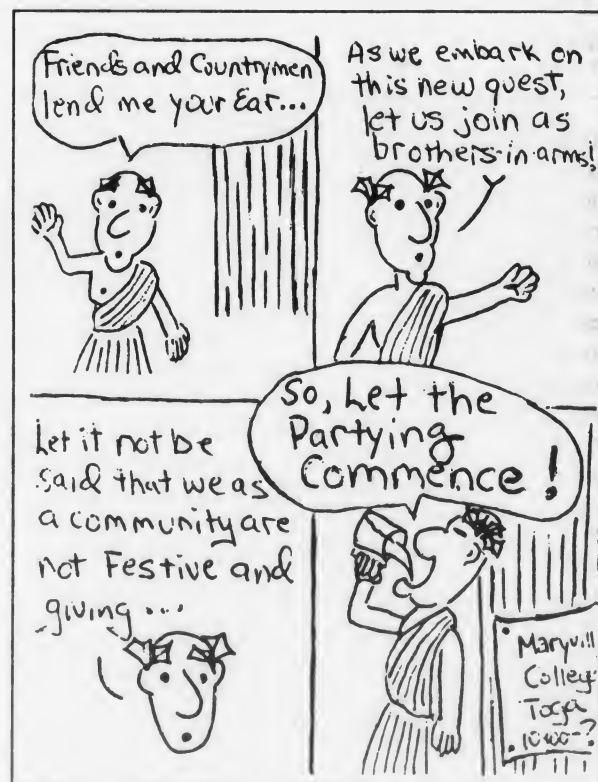 Friends and Countrymen
lend me your Ear...
As we embark on
this new quest,
let us join as
brothers-in-arms!
Let it not be
said that we as
a community are
not Festive and
giving...
So, Let the
Partying
Commence!
Maryvill
College
Toga
10:00-?